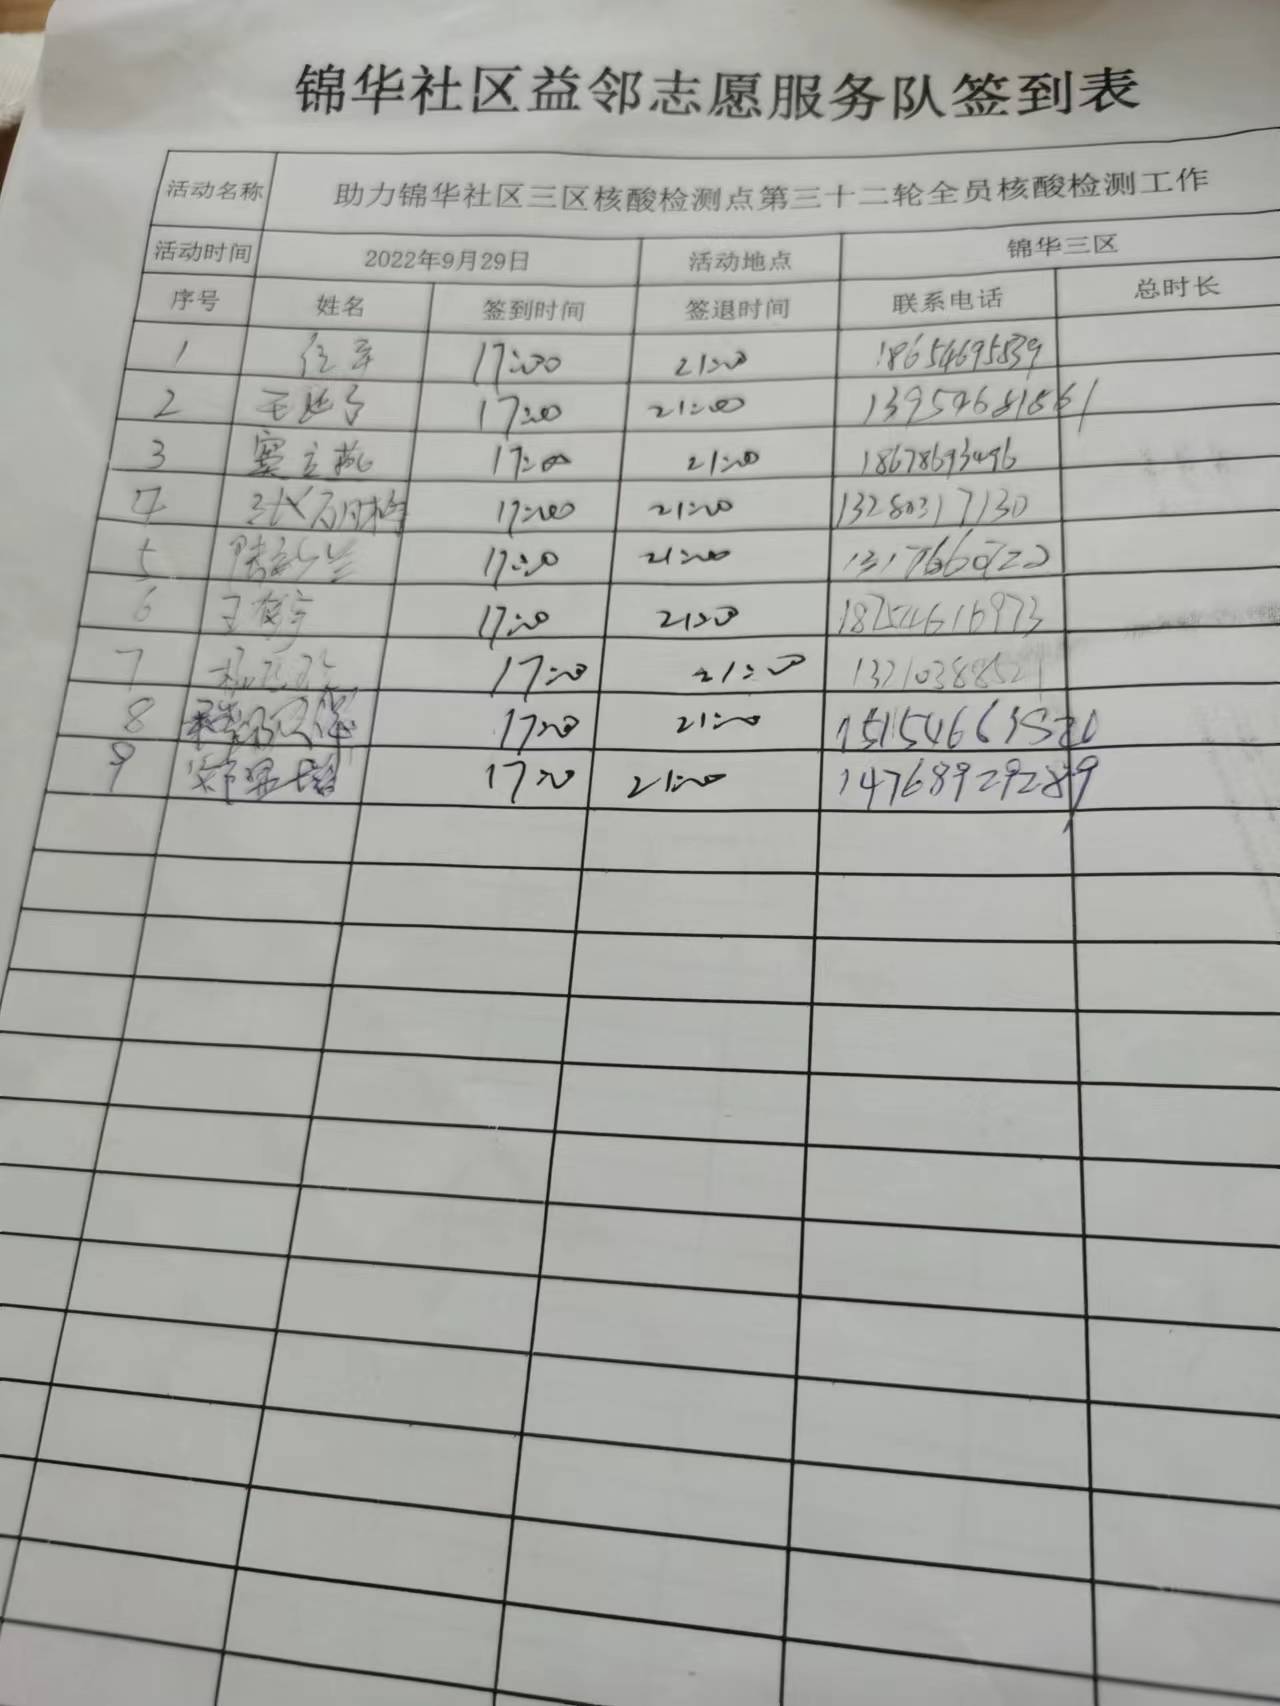 锦华社区益邻志愿服务队签到表
活动名称 助力锦华社区三区核酸检测点第三十二轮全员核酸检测工作
活动时间 2022年9月29日 活动地点 锦华三区
序号 姓名 签到时间 签退时间 联系电话 总时长
1 17:00 21:00 18654695839
2 17:00 21:00
3 窦立燕 17:00 21:00 18678693496
4 17:00 21:00 13280317130
5 17:00 21:00
6 17:00 21:00 18254616973
7 17:00 21:00 13210388521
8 17:00 21:00
9 17:00 21:00 14768929289